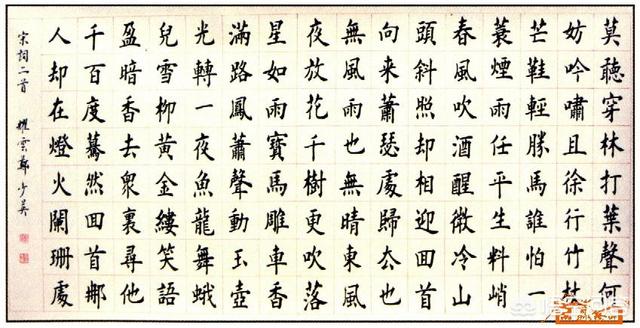 莫聽穿林打葉聲何
妨吟嘯且徐行竹杖
芒鞋輕勝馬誰怕一
蓑煙雨任平生料峭
春風吹酒醒微冷山
頭斜照却相迎回首
向来蕭瑟處歸厺也
無風雨也無晴東風
夜放花千樹更吹落
星如雨寶馬雕車香
滿路鳳蕭聲動玉壺
光轉一夜魚龍舞蛾
兒雪柳黃金縷笑語
盈暗香去衆裏尋他
千百度驀然回首那
人却在燈火闌珊處
宋詞二首 耀雲鄭少英